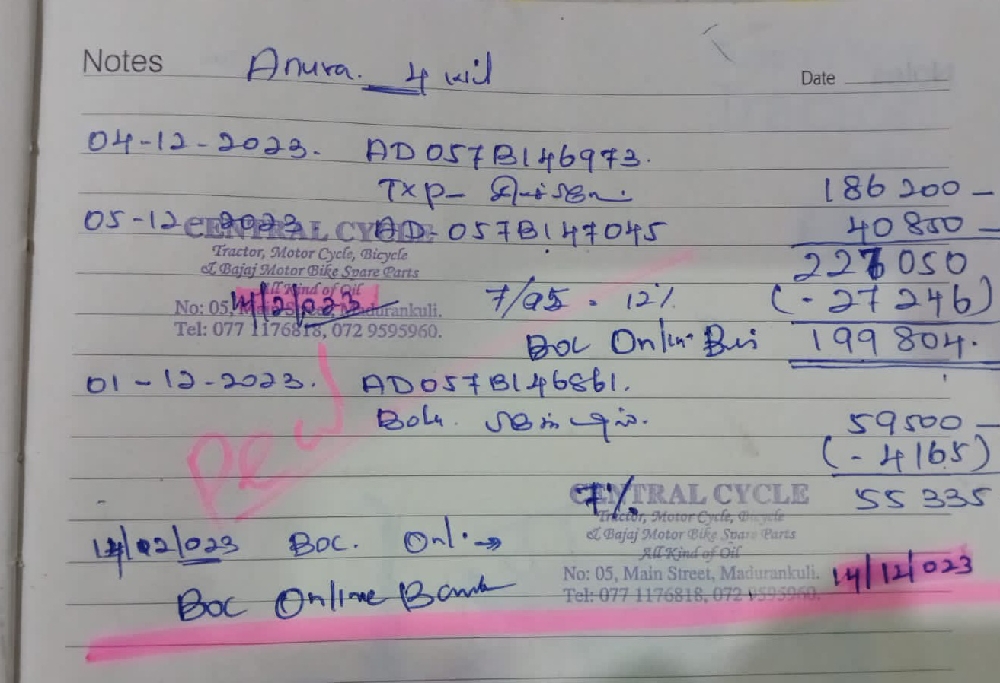 Notes Anura. 4 Date
04-12-2023. AD057B146973.
Txp- 186 200 -
05-12-2023 AD-057B147045 40850 -
CENTRAL CYCLE
Tractor, Motor Cycle, Bicycle
& Bajaj Motor Bike Spare Parts
227050
All Kind of Oil
No: 05, Main Street, Madurankuli.
7/95 - 12% (- 27246)
Tel: 077 1176818, 072 9595960.
BOC Online 199 804.
01-12-2023. AD057B146861.
59500 -
(- 4165)
7% 55 335
CENTRAL CYCLE
Tractor, Motor Cycle, Bicycle
& Bajaj Motor Bike Spare Parts
BOC. Onl.
All Kind of Oil
No: 05, Main Street, Madurankuli. 14/12/023
Tel: 077 1176818, 072 9595960.
BOC Online Bank